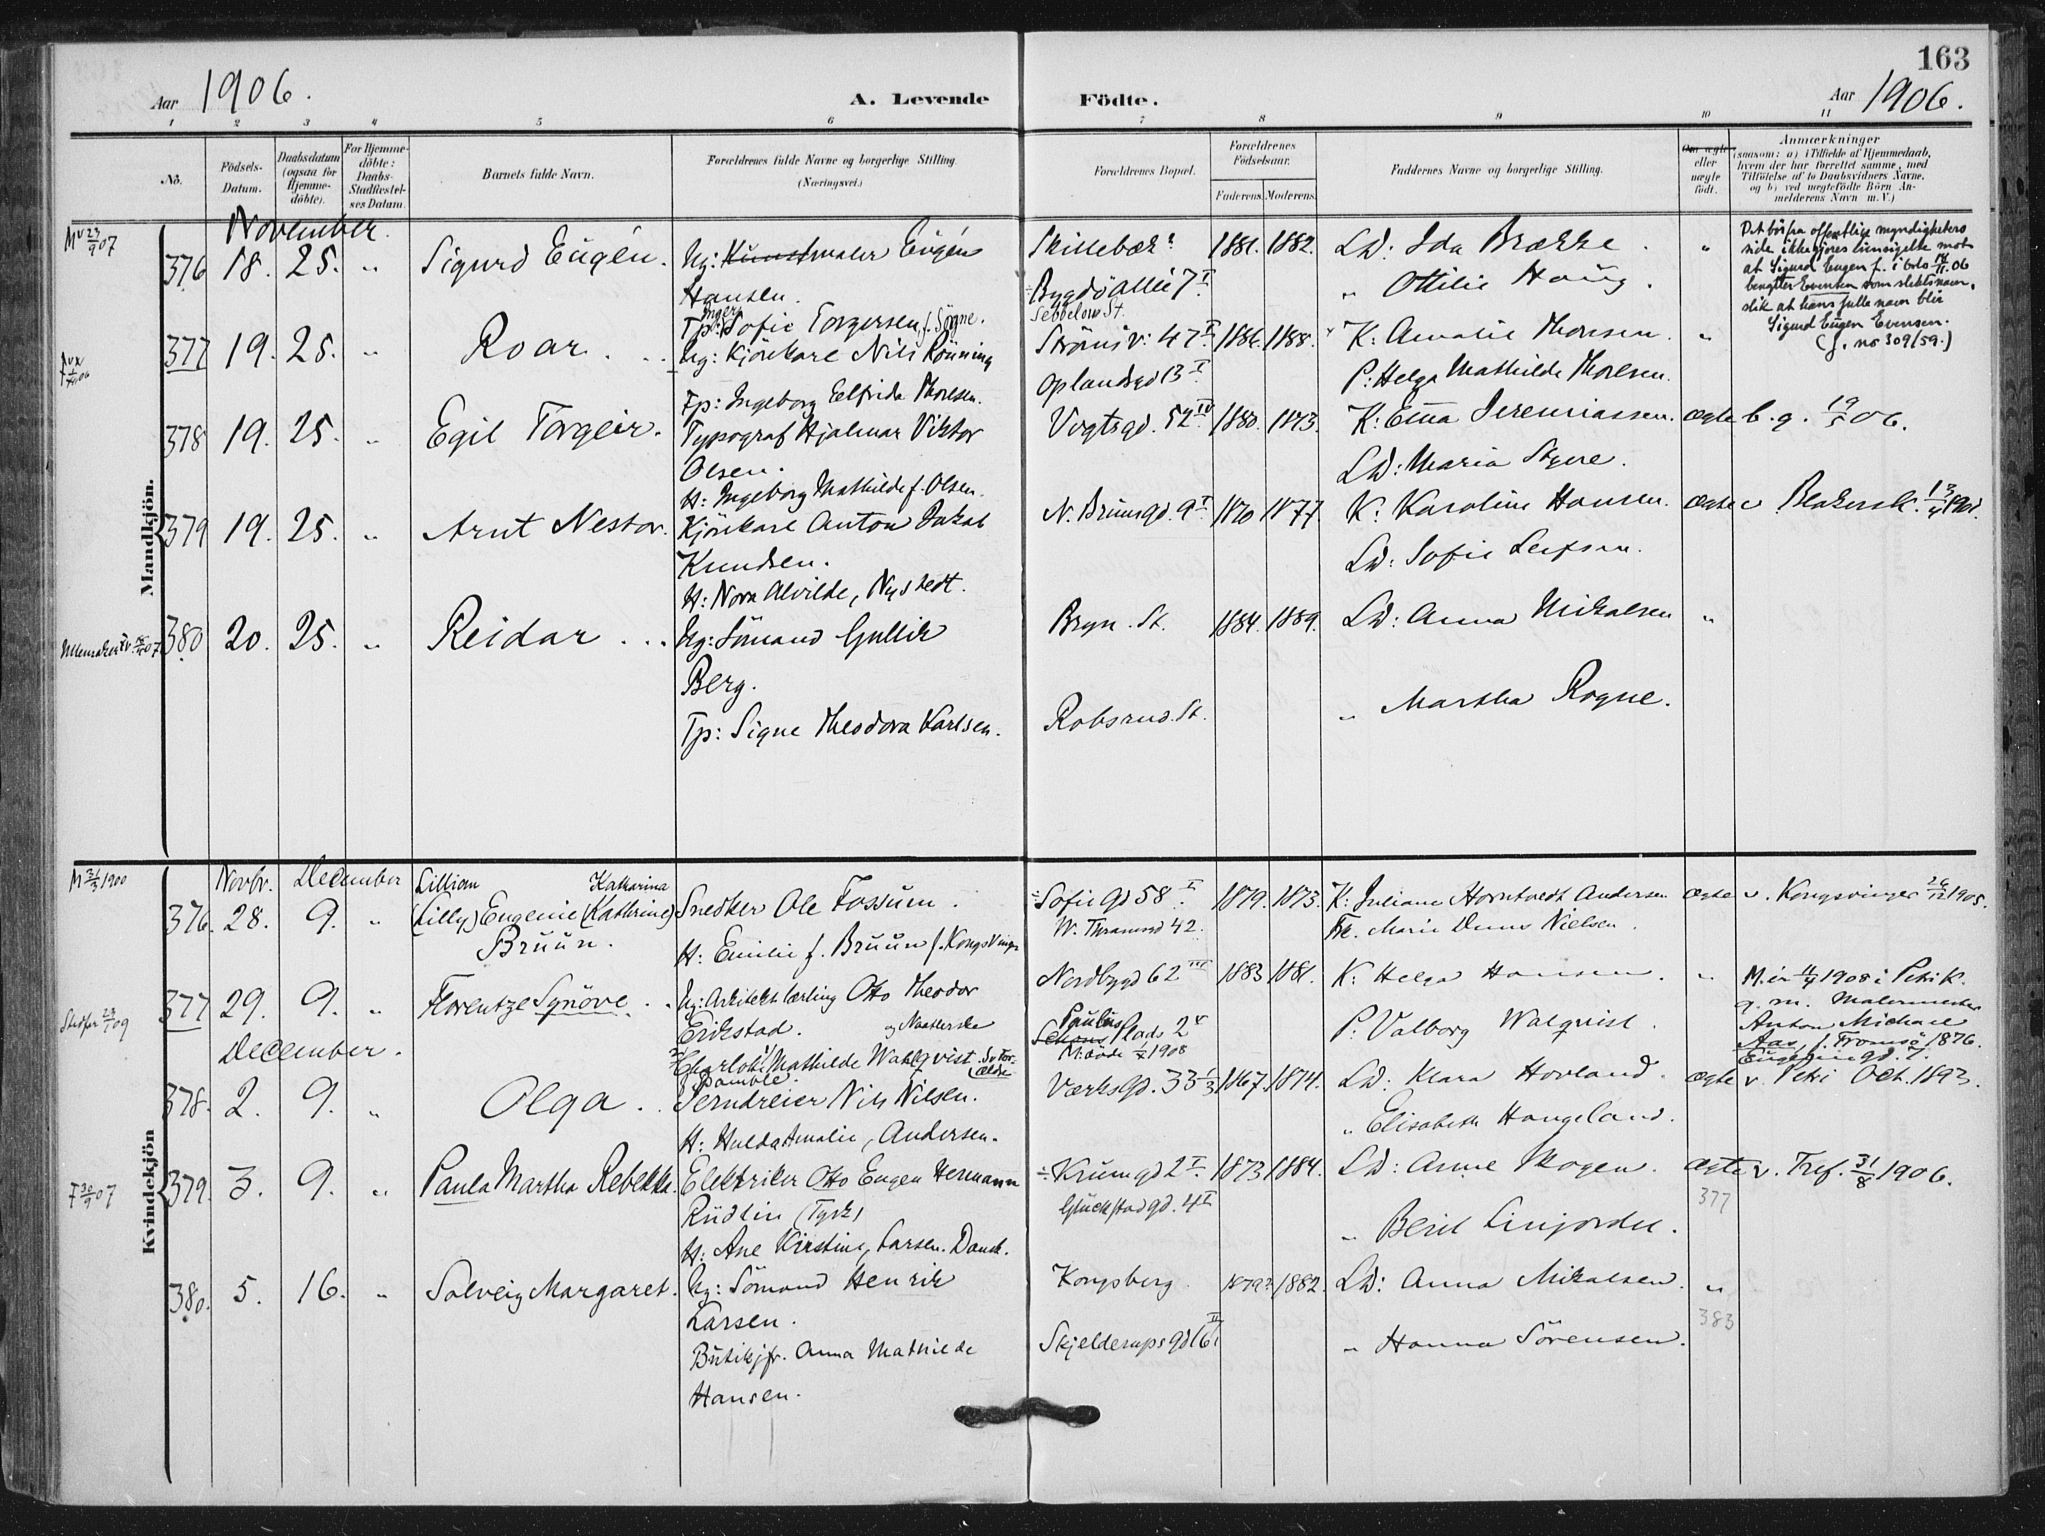 163
Aar 1906.
A. Levende
Födte.
Aar 1906.
1 2 3 4 5 6 7 8 9 10 11
No.
Födsels-Datum.
Daabsdatum (ogsaa for Hjemme-döbte).
For Hjemme-döbte: Daabs-Stadfæstel-ses Datum.
Barnets fulde Navn.
Forældrenes fulde Navne og borgerlige Stilling.
(Næringsvei.)
Forældrenes Bopæl.
Forældrenes Födselsaar.
Faderens. Moderens.
Faddernes Navne og borgerlige Stilling.
Om ægte eller uægte födt.
Anmærkninger
(saasom: a) i Tilfælde af Hjemmedaab,
hvem der har forrettet samme, med
Tilföielse af to Daabsvidners Navne,
og b) ved uægtefödte Börn An-
melderens Navn m. V.)
Mandkjön.
November.
376 18. 25. " Sigurd Eugén. Ug: Kunstmaler Eugén
Hansen.
Tp: Inger Sofie Torgersen, f. Sogne.
Skillebæk?
Bygdö Allé 7 I
Sebbelow St.
1881. 1882.
Ld: Ida Brække.
" Ottilie Haug.
"
Det bör fra offentlige myndigheters
side ikke gjøres innsigelse mot
at Sigurd Eugen f. i Oslo 18/11.06
benytter Evensen som slektsnavn,
slik at hans fulle navn blir
Sigurd Eugen Evensen.
(J. no 309/59.)
377 19. 25. " Roar. Ug: Kjörekarl Nils Rönning
Tp: Ingeborg Elfrida Thoresen.
Strömsv: 47 II
Oplandsgd 13 I
1886. 1888.
K: Amalie Thoresen.
P: Helga Mathilde Thoresen.
"
378 19. 25. " Egil Torgeir. Typograf Hjalmar Viktor
Olsen.
H: Ingeborg Mathilde f. Olsen.
Vogtsgd. 52 IV
1880. 1873.
K: Emma Jeremiassen.
Ld: Maria Styre.
ægte b. g. 19/5 06.
379 19. 25. " Arnt Nestor. Kjörekarl Anton Jakob
Knudsen.
H: Nora Alvilde, Nystedt.
N. Brunsgd. 9 I
1870 1877.
K. Karoline Hansen.
Ld: Sofie Leifsen.
ægte v Blakersk.
Ullensaker
380 20. 25. " Reidar. Ug: Sömand Gullik
Berg.
Tp: Signe Theodora Karlsen.
Bryn. St.
Robsrud. St.
1884. 1889.
Ld: Anna Mikalsen
" Martha Rogne.
"
Kvindekjön
Novbr. December
376. 28. 9. " Lillian (Lilly) Eugenie Katharina (Kathrine)
Bruun.
Snedker Ole Fossum.
H: Emilie f. Bruun f. Kongsvinger
Sofiegd 58 I
W. Thranesgd 42.
1879. 1873.
K: Juliane Horntvedt Andersen
Frk. Marie Dunus Nielsen.
ægte v. Kongsvinger 26/12 1905.
377 29. 9. " Florentze Synöve. Ug: Arkitektlærling Otto Theodor
Erikstad.
Charlotte Mathilde Wahlqvist
Bamble.
Nordbygd 62 III
Paulus
Schous Plads 2 V
M: döde 1908
1883 1881.
K: Helga Hansen.
P: Valborg Walqvist.
"
M. er 1908 i Petri K.
g. m. Malermester
Anton Michael
Aas, f. Tromsö 1876.
Eugeniegd. 7.
December.
378. 2. 9. " Olga. Jerndreier Nils Nilsen.
H: Hulda Amalie, Andersen.
Værksgd. 33
1867. 1874.
Ld: Klara Hovland.
" Elisabeth Haugeland.
ægte v. Petri Oct. 1893.
379. 3. 9. " Paula Martha Rebekka. Elektriker Otto Eugen Hermann
Rüdlin (Tysk)
H: Ane Kirstine, Larsen. Dansk.
Krumgd 2 I
Glückstadgd. 4 I
1873 1884.
Ld: Anne Skogen.
" Beret Linjordet.
ægte v. Tref. 31/8 1906.
377
380. 5. 16. " Solveig Margaret. Ug: Sömand Henrik
Larsen.
Butikjfr. Anna Mathilde
Hansen.
Kongsberg.
Skjelderupsgd 6 II
1879? 1882.
Ld: Anna Mikalsen.
" Hanna Sörensen.
"
383